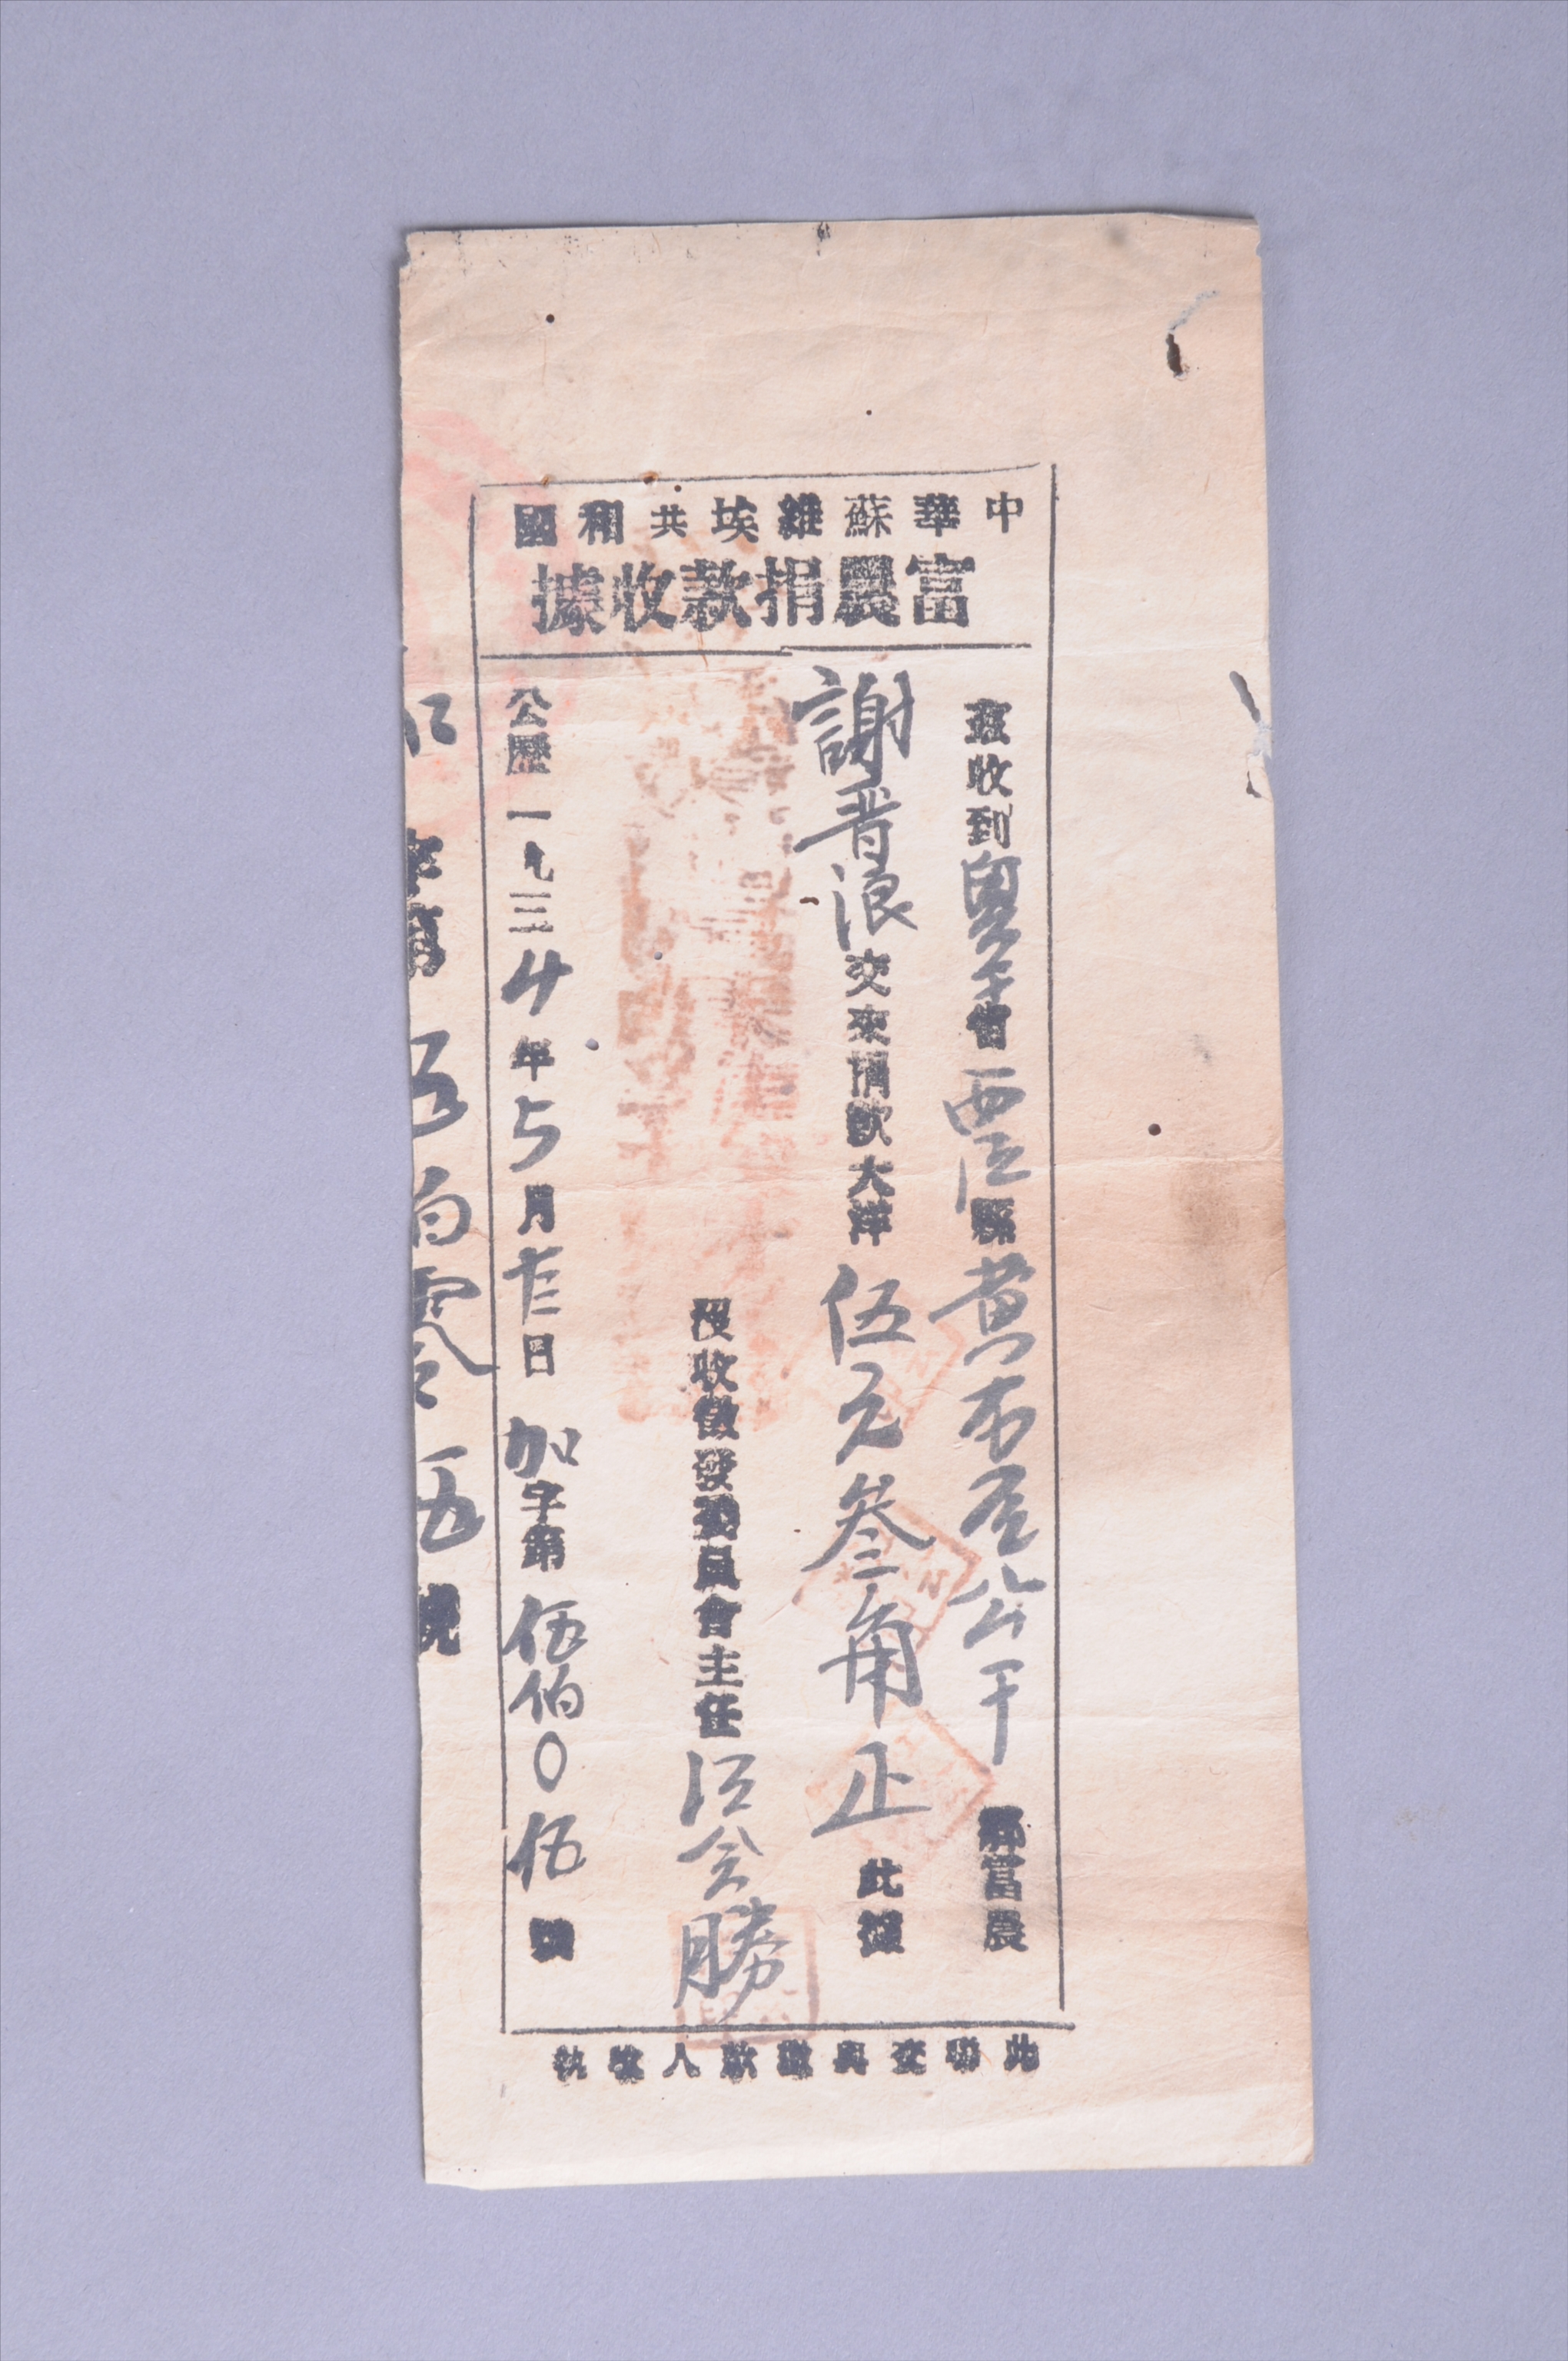 中華蘇維埃共和國
富農捐款收據
茲收到粵贛省西江縣黄布屋公干鄉富農
謝晋浪交來捐欵大洋伍元叁角正此據
沒收徵發委員會主任江会勝
公歷一九三4年5月廿三日加字第伍佰0伍號
字第五百零五號
此聯交與繳款人收执